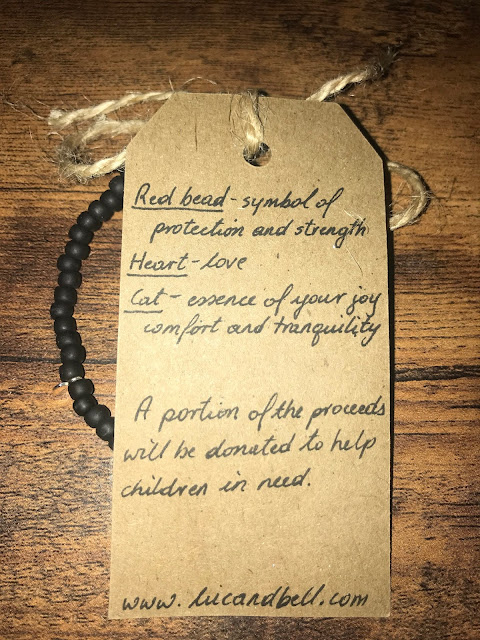 Red bead - symbol of
protection and strength
Heart - love
Cat - essence of your joy
comfort and tranquility
A portion of the proceeds
will be donated to help
children in need.
www.lucandbell.com